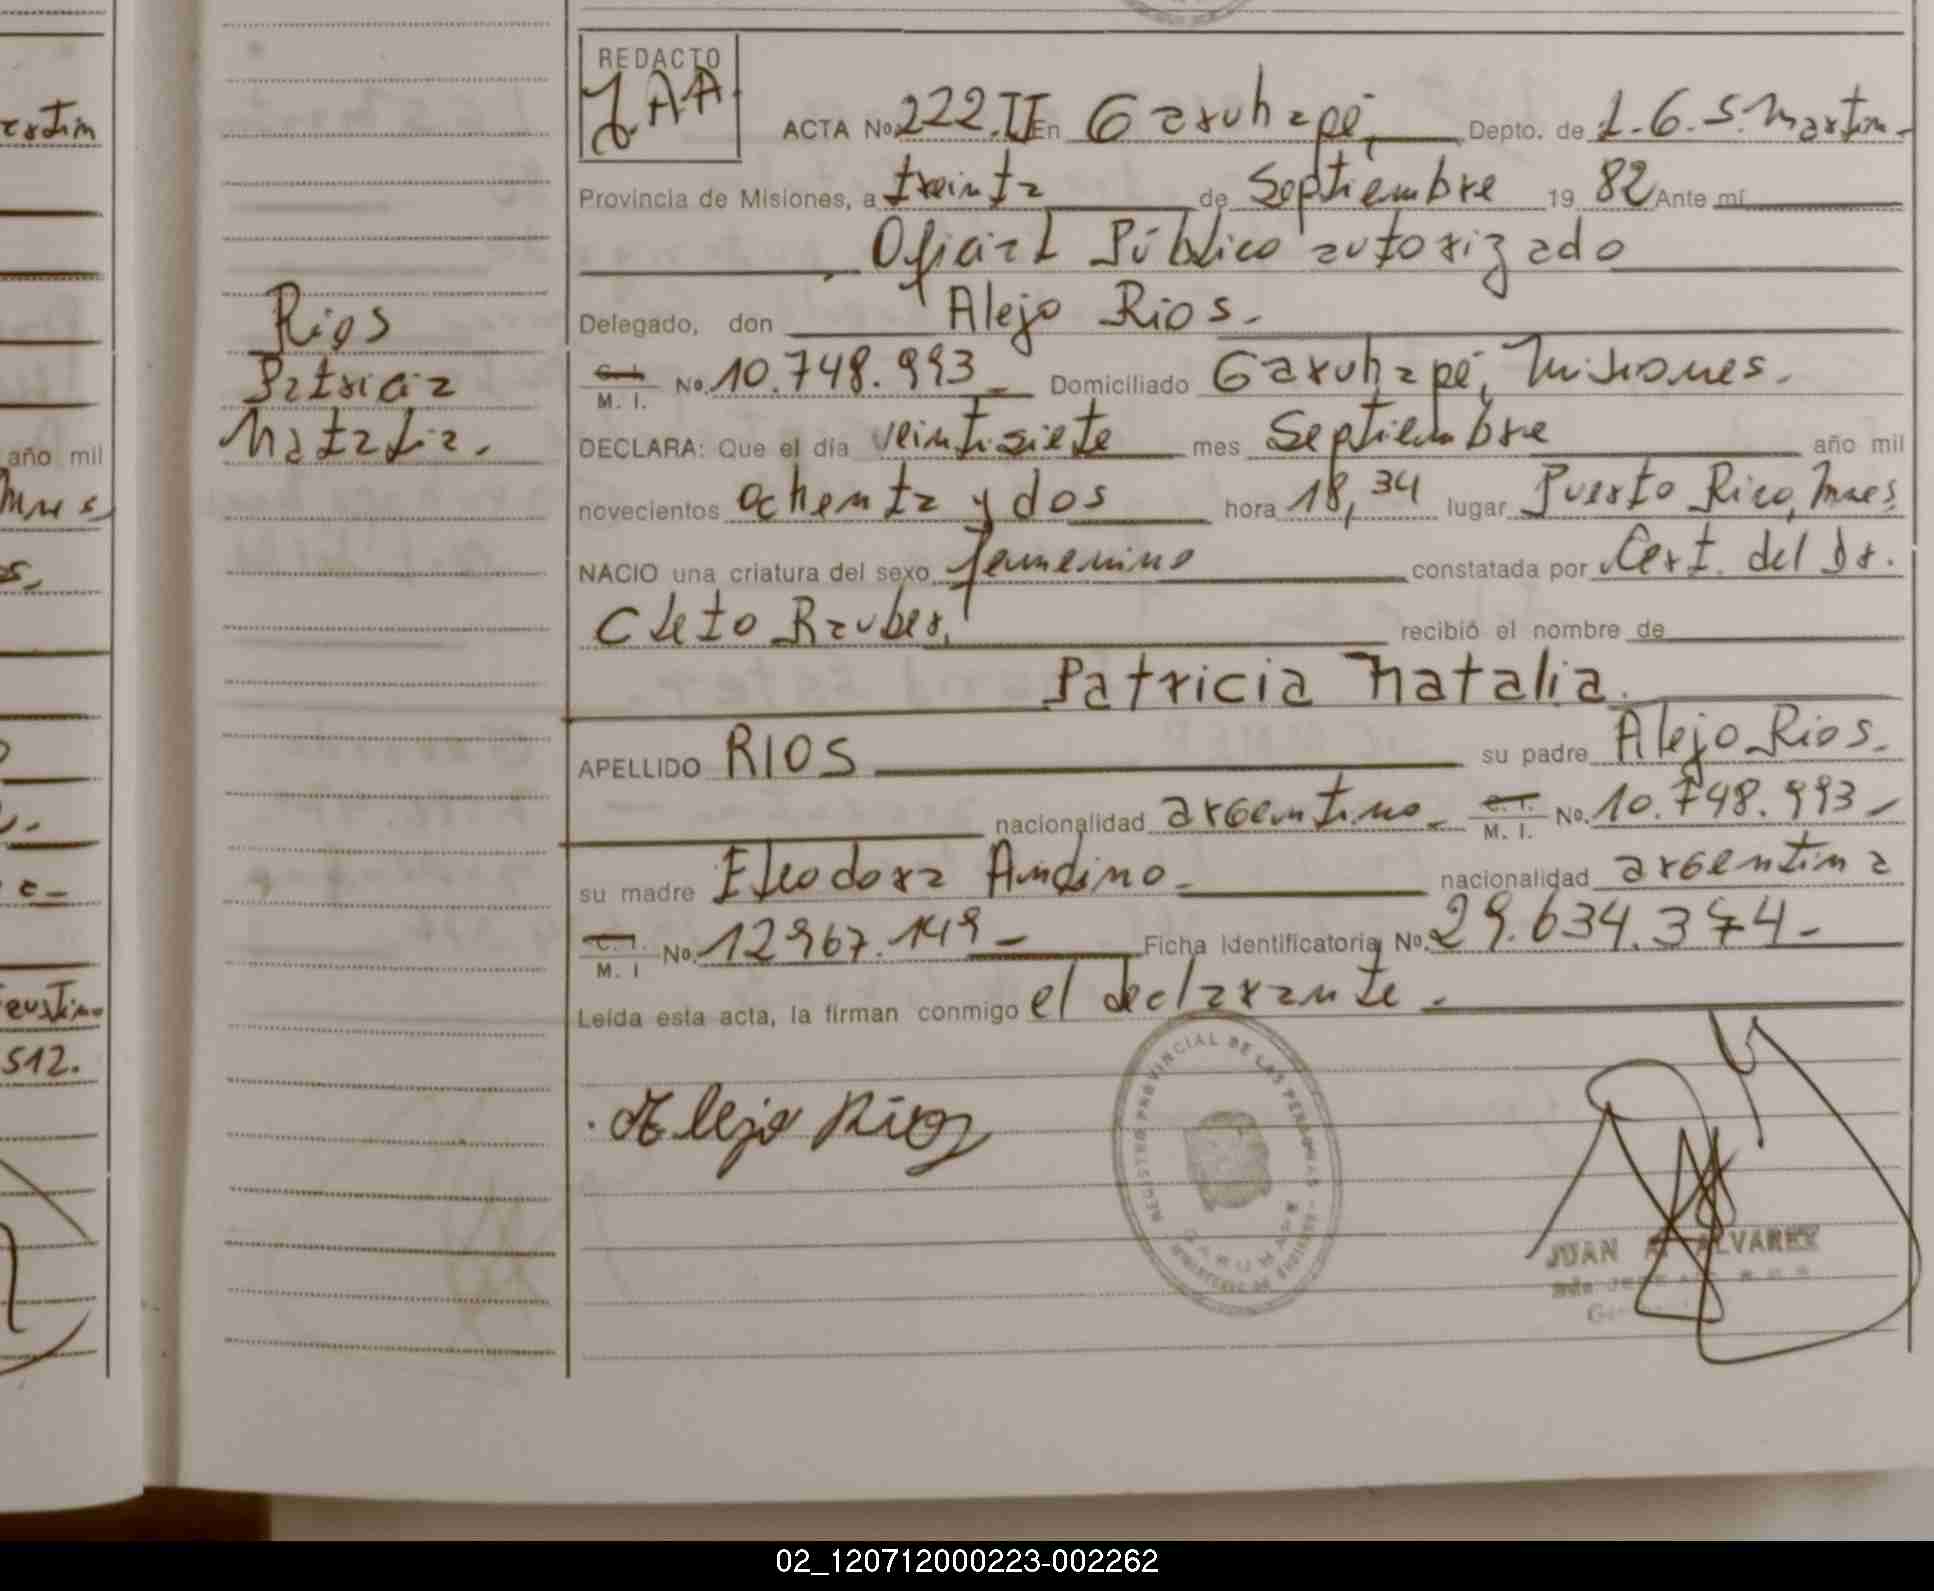 REDACTO
J.A.A.
ACTA No. 222.II En Garuhapé, Depto. de L.G.S. Martín.-
Provincia de Misiones, a treinta de Septiembre 19 82 Ante mí
Oficial Público autorizado
Delegado, don Alejo Rios.-
C. I. M. I. No. 10.748.993 Domiciliado Garuhapé, Misiones.
DECLARA: Que el día veintisiete mes Septiembre año mil
novecientos ochenta y dos hora 18,34 lugar Puerto Rico, Mnes
NACIO una criatura del sexo femenino constatada por Cert. del Dr.
Cleto Rauber, recibió el nombre de
Patricia Natalia.
APELLIDO RIOS su padre Alejo Rios.
nacionalidad argentino.- C. I. M. I. No. 10.748.993-
su madre Eleodora Andino.- nacionalidad argentina
C. I. M. I No. 12967.149- Ficha Identificatoria No. 29.634.374-
Leída esta acta, la firman conmigo el declarante.-
Rios
Patricia
Natalia.
Alejo Rios
REGISTRO PROVINCIAL DE LAS PERSONAS
GARUHAPE
JUAN A. ALVAREZ
año mil
Mnes
512.
02_120712000223-002262